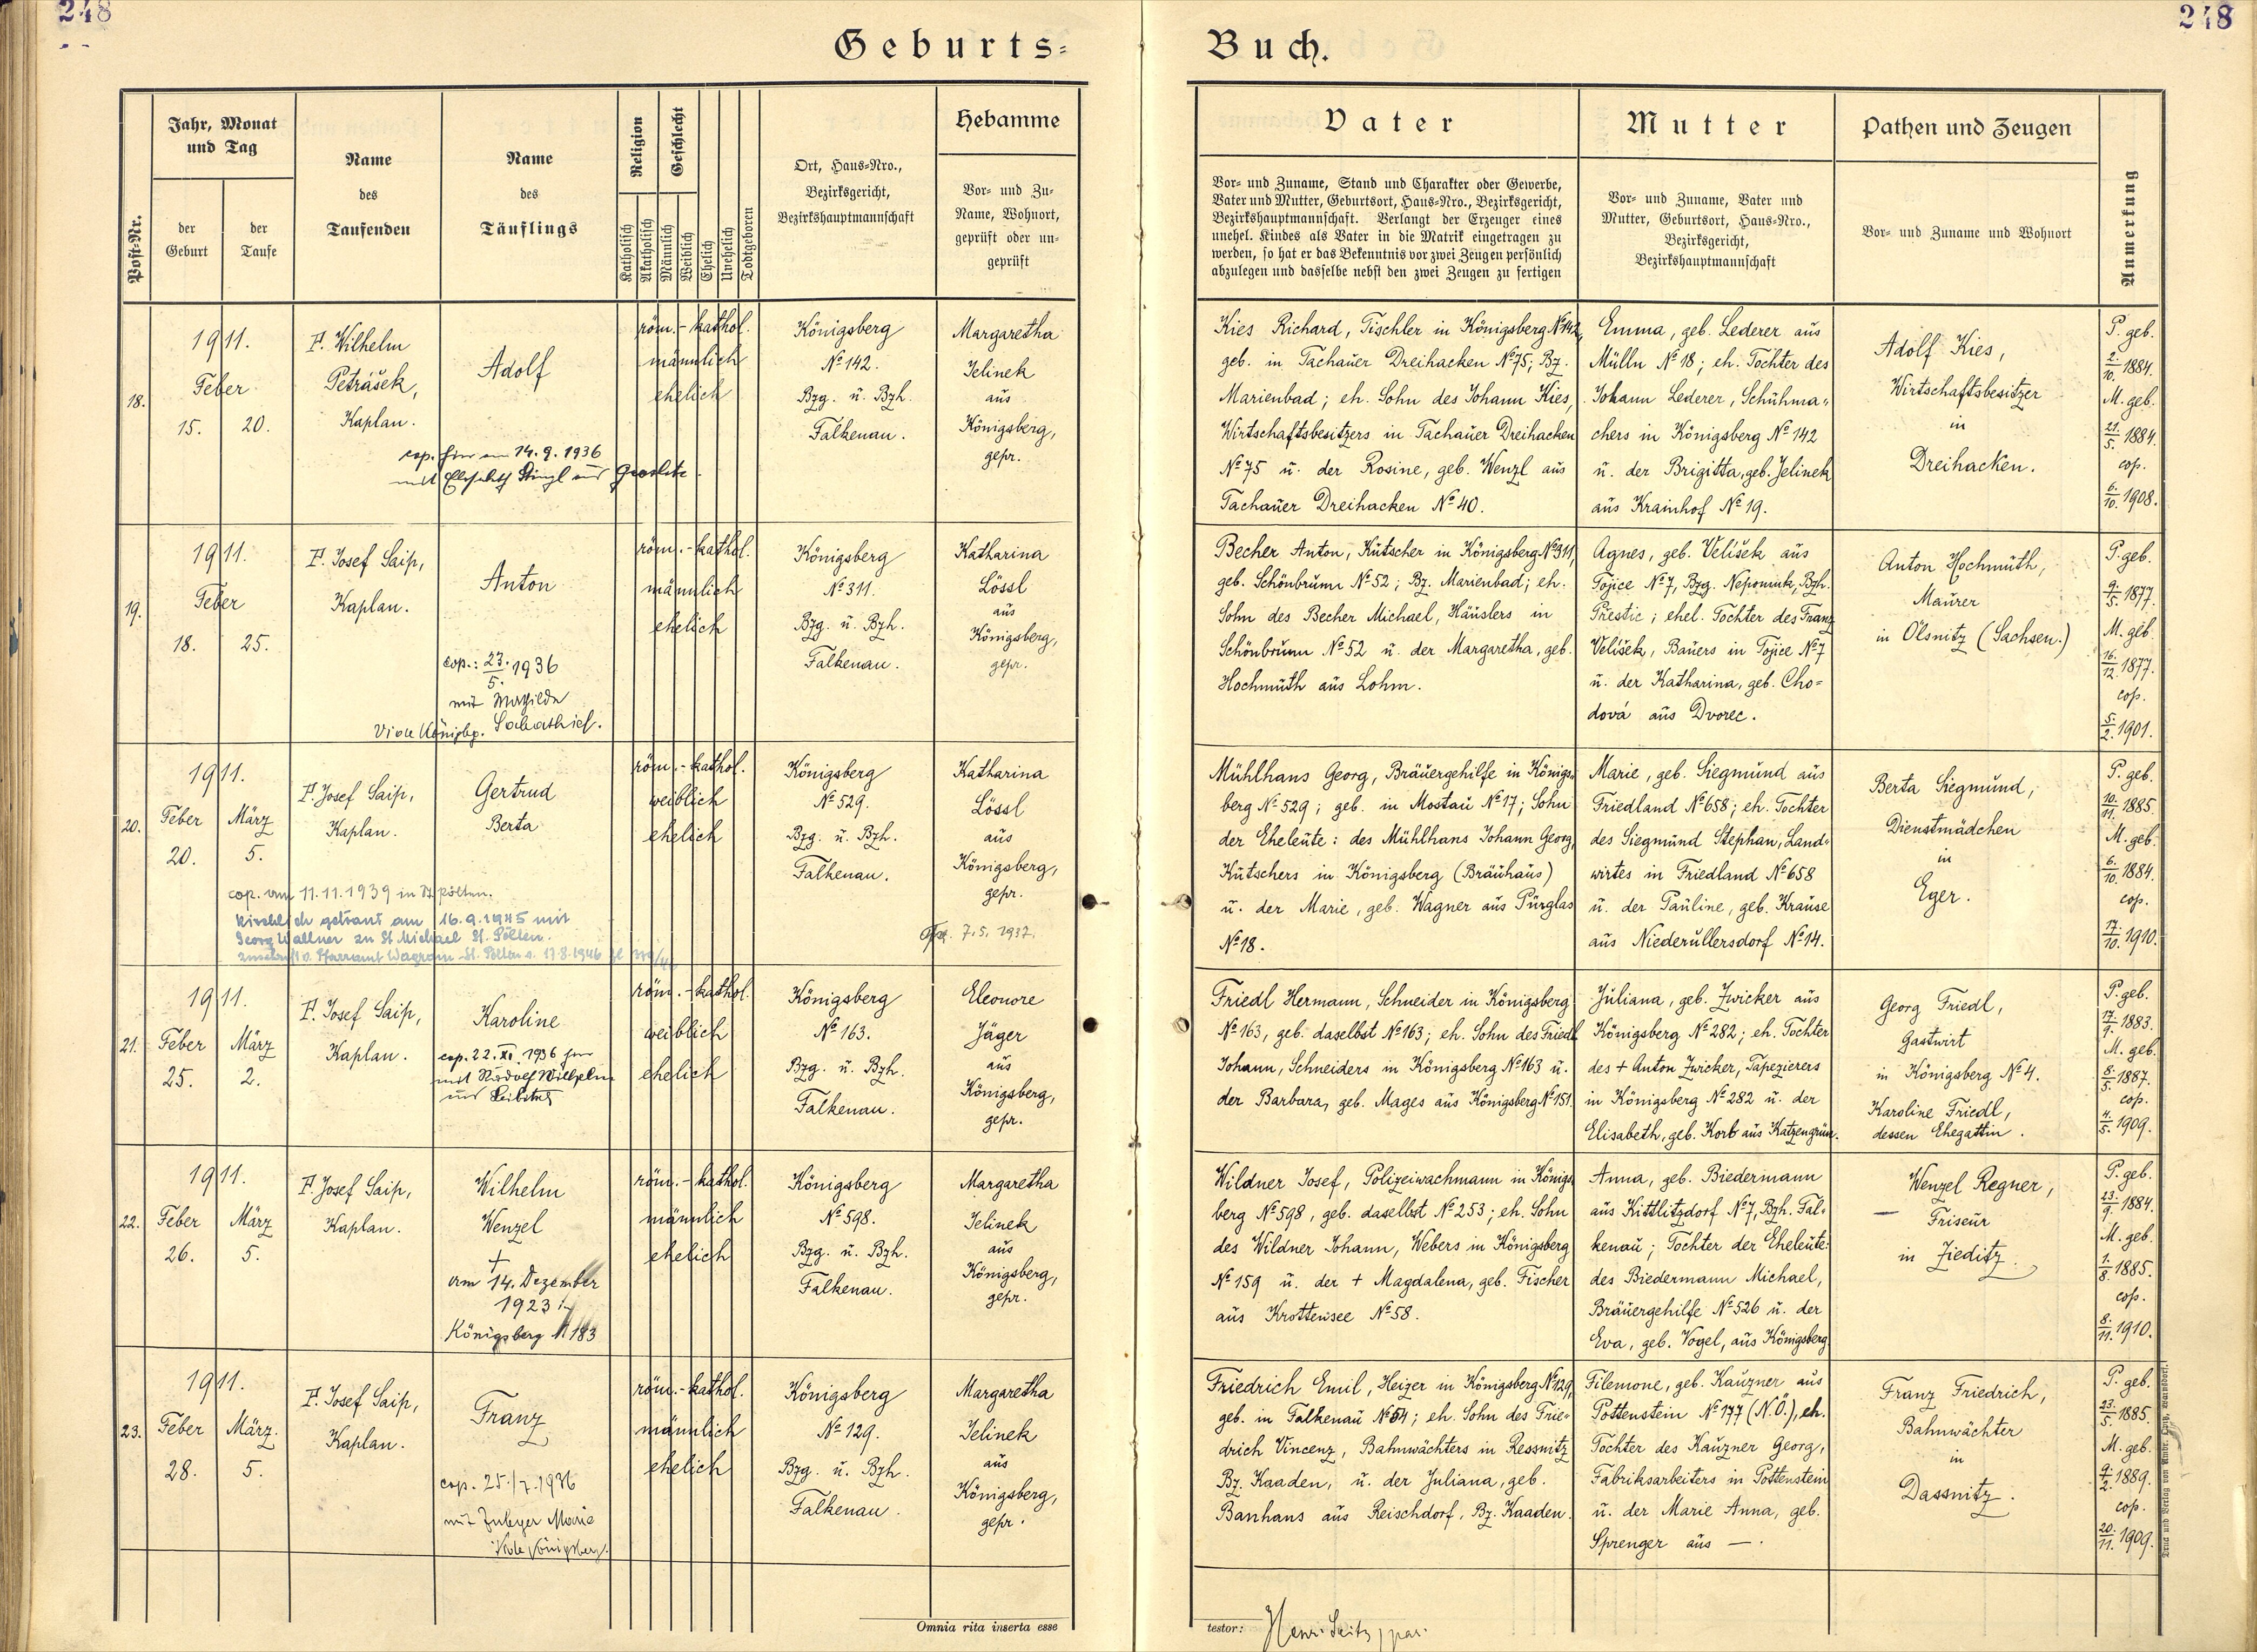 248
248
Geburts=
Buch.
Post-Nr.
Jahr, Monat
und Tag
der
Geburt
der
Taufe
Name
des
Taufenden
Name
des
Täuflings
Religion
Geschlecht
Katholisch
Akatholisch
Männlich
Weiblich
Ehelich
Unehelich
Todtgeboren
Ort, Haus=Nro.,
Bezirksgericht,
Bezirkshauptmannschaft
Hebamme
Vor= und Zu=
Name, Wohnort,
geprüft oder un=
geprüft
Vater
Vor= und Zuname, Stand und Charakter oder Gewerbe,
Vater und Mutter, Geburtsort, Haus=Nro., Bezirksgericht,
Bezirkshauptmannschaft. Verlangt der Erzeuger eines
unehel. Kindes als Vater in die Matrik eingetragen zu
werden, so hat er das Bekenntnis vor zwei Zeugen persönlich
abzulegen und dasselbe nebst den zwei Zeugen zu fertigen
Mutter
Vor= und Zuname, Vater und
Mutter, Geburtsort, Haus=Nro.,
Bezirksgericht,
Bezirkshauptmannschaft
Pathen und Zeugen
Vor= und Zuname und Wohnort
Anmerkung
18.
1911.
Feber
15. 20.
P. Wilhelm
Petrášek,
Kaplan.
Adolf
cop. hier am 14.9.1936
mit Elisabeth Stingl aus
röm.-kathol.
männlich
ehelich
Königsberg
№ 142.
Bzg. u. Bzh.
Falkenau.
Margaretha
Jelinek
aus
Königsberg,
gepr.
Kies Richard, Tischler in Königsberg №142,
geb. in Tachauer Dreihacken №75; Bz.
Marienbad; eh. Sohn des Johann Kies,
Wirtschaftsbesitzers in Tachauer Dreihacken
№75 u. der Rosine, geb. Wenzl aus
Tachauer Dreihacken № 40.
Emma, geb. Lederer aus
Mülln № 18; eh. Tochter des
Johann Lederer, Schuhma=
chers in Königsberg № 142
u. der Brigitta, geb. Jelinek
aus Krainhof № 19.
Adolf Kies,
Wirtschaftsbesitzer
in
Dreihacken.
P. geb.
2./10. 1884.
M. geb.
21./5. 1884.
cop.
6./10. 1908.
19.
1911.
Feber
18. 25.
P. Josef Saip,
Kaplan.
Anton
cop.: 23./5. 1936
mit Mathilde
röm.-kathol.
männlich
ehelich
Königsberg
№ 311.
Bzg. u. Bzh.
Falkenau.
Katharina
Lössl
aus
Königsberg,
gepr.
Becher Anton, Kutscher in Königsberg №311,
geb. Schönbrunn № 52; Bz. Marienbad; eh.
Sohn des Becher Michael, Häuslers in
Schönbrunn №52 u. der Margaretha, geb.
Hochmuth aus Lohm.
Agnes, geb. Velišek aus
Tojice №7, Bzg. Nepomuk, Bzh.
Přestic; ehel. Tochter des Franz
Velišek, Bauers in Tojice №7
u. der Katharina, geb. Cho=
dová aus Dvorec.
Anton Hochmuth,
Maurer
in Ölsnitz (Sachsen.)
P. geb.
9./5. 1877.
M. geb.
16./12. 1877.
cop.
5./2. 1901.
20.
1911.
Feber März
20. 5.
P. Josef Saip,
Kaplan.
Gertrud
Berta
cop. am 11.11.1939 in St. Pölten.
kirchlich getraut am 16.9.1945 mit
Georg Wallner zu St Michael St. Pölten.
Zuschrift v. Pfarramt Wagram St. Pölten v. 17.8.1946
röm.-kathol.
weiblich
ehelich
Königsberg
№ 529.
Bzg. u. Bzh.
Falkenau.
Katharina
Lössl
aus
Königsberg,
gepr.
7.5.1937.
Mühlhans Georg, Bräuergehilfe in Königs=
berg № 529; geb. in Mostau № 17; Sohn
der Eheleute: des Mühlhans Johann Georg,
Kutschers in Königsberg (Bräuhaus)
u. der Marie, geb. Wagner aus Pürglas
№ 18.
Marie, geb. Siegmund aus
Friedland № 658; eh. Tochter
des Siegmund Stephan, Land=
wirtes in Friedland № 658
u. der Pauline, geb. Krause
aus Niederullersdorf № 14.
Berta Siegmund,
Dienstmädchen
in
Eger.
P. geb.
10./11. 1885.
M. geb.
6./10. 1884.
cop.
17./10. 1910.
21.
1911.
Feber März
25. 2.
P. Josef Saip,
Kaplan.
Karoline
cop. 22. XI. 1936 hier
mit Rudolf Wilhelm
röm.-kathol.
weiblich
ehelich
Königsberg
№ 163.
Bzg. u. Bzh.
Falkenau.
Eleonore
Jäger
aus
Königsberg,
gepr.
Friedl Hermann, Schneider in Königsberg
№163, geb. daselbst №163; eh. Sohn des Friedl
Johann, Schneiders in Königsberg №163 u.
der Barbara, geb. Mages aus Königsberg №151.
Juliana, geb. Zwicker aus
Königsberg № 282; eh. Tochter
des + Anton Zwicker, Tapezierers
in Königsberg № 282 u. der
Elisabeth, geb. Korb aus Katzengrün.
Georg Friedl,
Gastwirt
in Königsberg № 4.
Karoline Friedl,
dessen Ehegattin.
P. geb.
17./9. 1883.
M. geb.
8./5. 1887.
cop.
4./5. 1909.
22.
1911.
Feber März
26. 5.
P. Josef Saip,
Kaplan.
Wilhelm
Wenzel
+
am 14. Dezember
1923 in
Königsberg № 183
röm.-kathol.
männlich
ehelich
Königsberg
№ 598.
Bzg. u. Bzh.
Falkenau.
Margaretha
Jelinek
aus
Königsberg,
gepr.
Wildner Josef, Polizeiwachmann in Königs=
berg № 598, geb. daselbst № 253; eh. Sohn
des Wildner Johann, Webers in Königsberg
№ 159 u. der + Magdalena, geb. Fischer
aus Krottensee № 58.
Anna, geb. Biedermann
aus Kittlitzdorf №7, Bzh. Fal=
kenau; Tochter der Eheleute:
des Biedermann Michael,
Bräuergehilfe № 526 u. der
Eva, geb. Vogel, aus Königsberg
Wenzel Regner,
Friseur
in Zieditz.
P. geb.
23./9. 1884.
M. geb.
1./8. 1885.
cop.
8./11. 1910.
23.
1911.
Feber März.
28. 5.
P. Josef Saip,
Kaplan.
Franz
cop. 25./7. 1936
mit Zuleger Marie
röm.-kathol.
männlich
ehelich
Königsberg
№ 129.
Bzg. u. Bzh.
Falkenau.
Margaretha
Jelinek
aus
Königsberg,
gepr.
Friedrich Emil, Heizer in Königsberg №129,
geb. in Falkenau №64; eh. Sohn des Frie=
drich Vincenz, Bahnwächters in Ressnitz
Bz. Kaaden, u. der Juliana, geb.
Banhans aus Reischdorf, Bz. Kaaden.
Filemone, geb. Kauzner aus
Pottenstein № 177 (N.Ö.), eh.
Tochter des Kauzner Georg,
Fabriksarbeiters in Pottenstein
u. der Marie Anna, geb.
Sprenger aus —.
Franz Friedrich,
Bahnwächter
in
Dassnitz.
P. geb.
23./5. 1885.
M. geb.
9./2. 1889.
cop.
20./11. 1909.
Omnia rita inserta esse
testor:
Druck und Verlag von Ambr. Opitz, Warnsdorf.